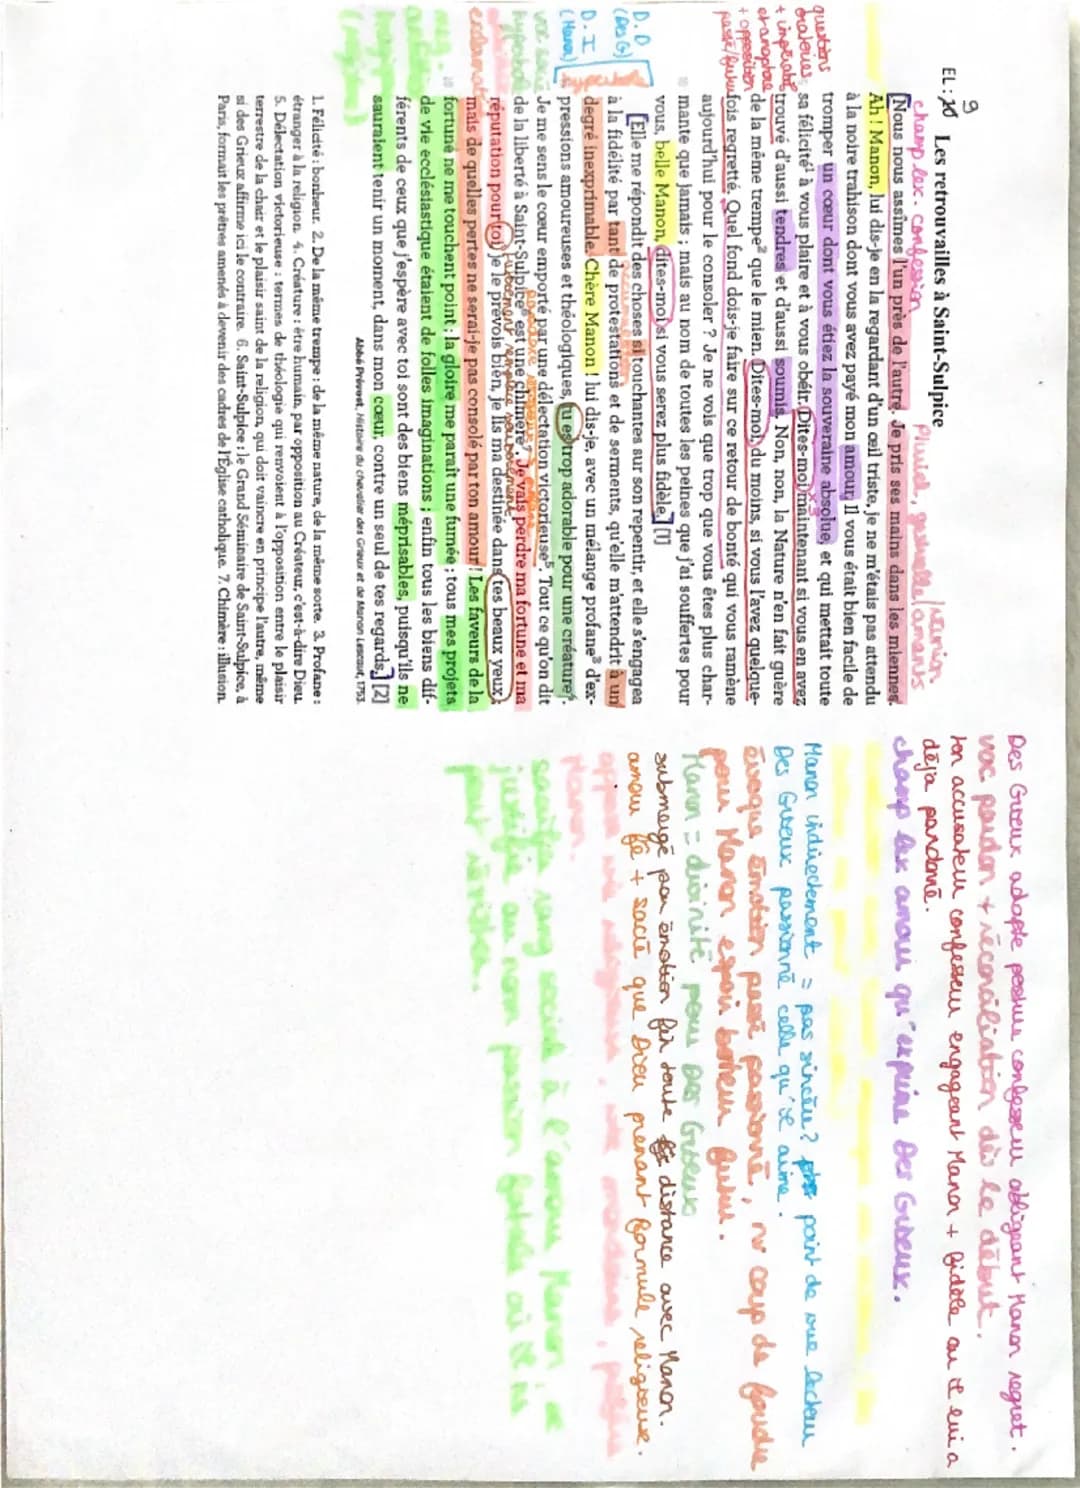 EL : 9
Les retrouvailles à Saint-Sulpice
champ lex - confession
Pluriel, gestuelle / réunion amants
[Nous nous assîmes l'un près de l'autre. Je pris ses mains dans les miennes.
Ah ! Manon, lui dis-je en la regardant d'un œil triste, je ne m'étais pas attendu
à la noire trahison dont vous avez payé mon amour. Il vous était bien facile de
tromper un cœur dont vous étiez la souveraine absolue, et qui mettait toute
sa félicité¹ à vous plaire et à vous obéir. Dites-moi maintenant si vous en avez
trouvé d'aussi tendres et d'aussi soumis. Non, non, la Nature n'en fait guère
de la même trempe² que le mien. Dites-moi du moins, si vous l'avez quelque-
fois regretté. Quel fond dois-je faire sur ce retour de bonté qui vous ramène
aujourd'hui pour le consoler ? Je ne vois que trop que vous êtes plus char-
mante que jamais ; mais au nom de toutes les peines que j'ai souffertes pour
vous, belle Manon, dites-moi si vous serez plus fidèle.] [1]
[Elle me répondit des choses si touchantes sur son repentir, et elle s'engagea
à la fidélité par tant de protestations et de serments, qu'elle m'attendrit à un
degré inexprimable. Chère Manon ! lui dis-je, avec un mélange profane³ d'ex-
pressions amoureuses et théologiques, tu es trop adorable pour une créature⁴.
Je me sens le cœur emporté par une délectation victorieuse⁵. Tout ce qu'on dit
de la liberté à Saint-Sulpice⁶ est une chimère⁷. Je vais perdre ma fortune et ma
réputation pour toi, je le prévois bien, je lis ma destinée dans tes beaux yeux ;
mais de quelles pertes ne serai-je pas consolé par ton amour ! Les faveurs de la
fortune ne me touchent point ; la gloire me paraît une fumée ; tous mes projets
de vie ecclésiastique étaient de folles imaginations ; enfin tous les biens dif-
férents de ceux que j'espère avec toi sont des biens méprisables, puisqu'ils ne
sauraient tenir un moment, dans mon cœur, contre un seul de tes regards.] [2]
Abbé Prévost, Histoire du chevalier des Grieux et de Manon Lescaut, 1753.
1. Félicité : bonheur. 2. De la même trempe : de la même nature, de la même sorte. 3. Profane :
étranger à la religion. 4. Créature : être humain, par opposition au Créateur, c'est-à-dire Dieu.
5. Délectation victorieuse : termes de théologie qui renvoient à l'opposition entre le plaisir
terrestre de la chair et le plaisir saint de la religion, qui doit vaincre en principe l'autre, même
si des Grieux affirme ici le contraire. 6. Saint-Sulpice : le Grand Séminaire de Saint-Sulpice, à
Paris, formait les prêtres amenés à devenir des cadres de l'Église catholique. 7. Chimère : illusion.
questions
oratoires
+ impératif
et anaphore
x3
+ opposition
passé/futur
D.D
(Des G)
D.I
(Manon)
hyperbole
Des Grieux adopte posture confesseur obligeant Manon regret.
voc pardon + réconciliation dès le début.
ton accusateur confesseur engageant Manon + fidèle car il lui a
déja pardonné.
champ lex amour qu'exprime Des Grieux.
Manon indirectement = pas sincère? point de vue lecteur
Des Grieux passionné celle qu'il aime.
évoque émotion passé passionné, nv coup de foudre
pour Manon espoir bonheur futur.
Manon = divinité pour Des Grieux
submergé par émotion fin toute distance avec Manon.
amour fé + sacré que Dieu prenant formule religieuse.
Manon.
sacrifie rang social à l'amour Manon